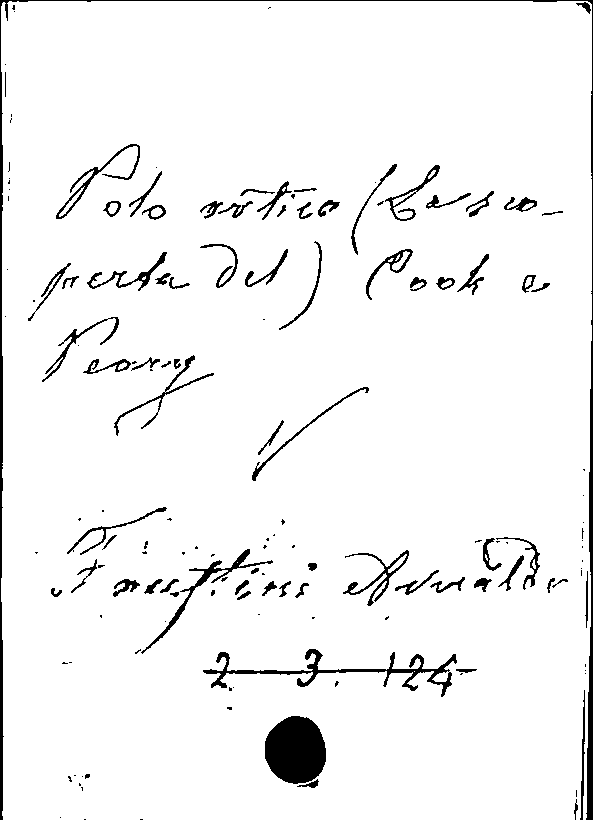 Polo artico (La sco-
perta del) Cook e
Peary
V
Faustini Arnaldo
2. 3. 124